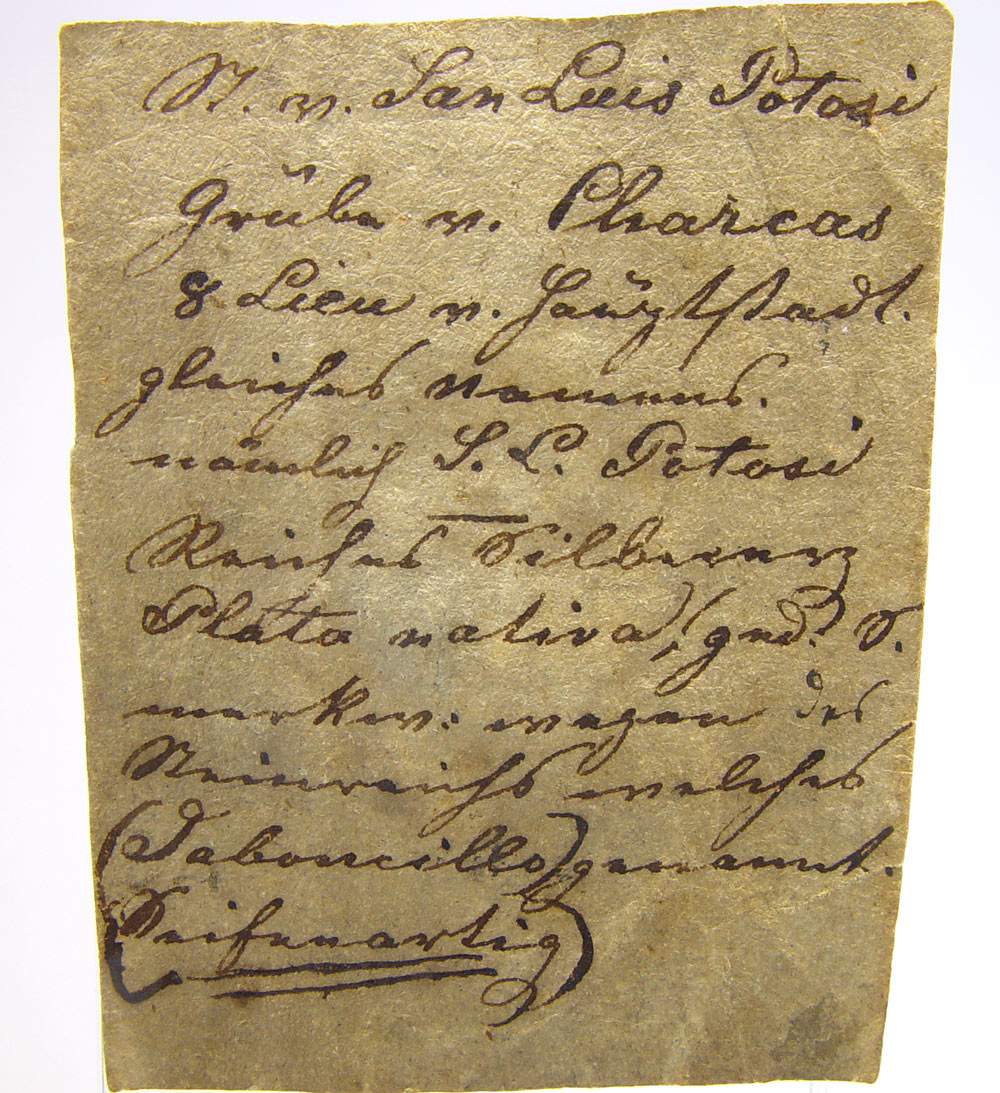 St. v. San Luis Potosi
Grube v. Charcas
8 Lieu v. Hauptstadt.
gleiches namens.
nämlich S. L. Potosi
Reiches Silbererz
Plata nativa, (ged. S.
merkw: wegen des
welches
(Jaboncillo) genannt.
(Seifenartig)